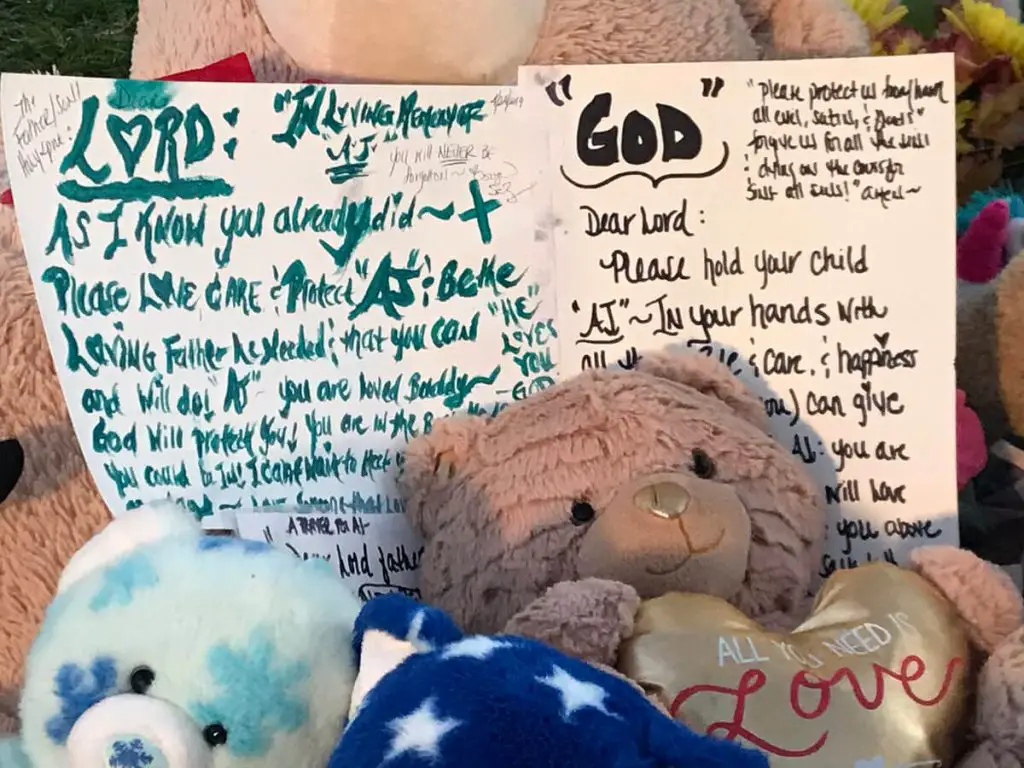 Dear
LORD:
"IN LOVING MEMORY OF
"AJ"
you will NEVER BE
forgotten~
AS I KNOW you already did~
Please LOVE CARE & Protect "AJ" & Be the
LOVING Father he Needed & that you can
and will do! "AJ" ~ you are loved Buddy~
God will protect you! you are in the
you could be in! I can't wait to meet
"HE"
LOVES
YOU
~GOD
A PRAYER FOR AJ~
Dear Lord father
"GOD"
"Please protect us today from
all evil, satin, &
forgive us for all the
on the cross for
Dear Lord:
Please hold your child
"AJ"~ IN your hands with
all & care, & happiness
you) can give
AJ: you are
will love
you above
ALL YOU NEED IS
Love